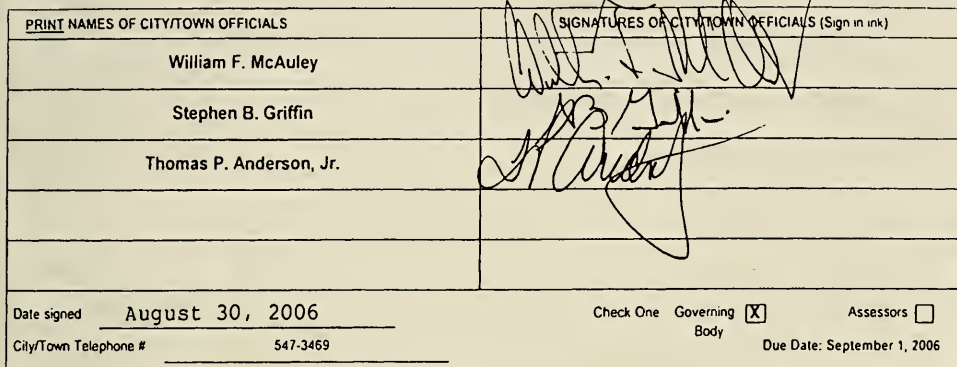 PRINT NAMES OF CITY/TOWN OFFICIALS SIGNATURES OF CITY/TOWN OFFICIALS (Sign in ink)
William F. McAuley
Stephen B. Griffin
Thomas P. Anderson, Jr.
Date signed August 30, 2006 Check One Governing Body [X] Assessors [ ]
City/Town Telephone # 547-3469 Due Date: September 1, 2006